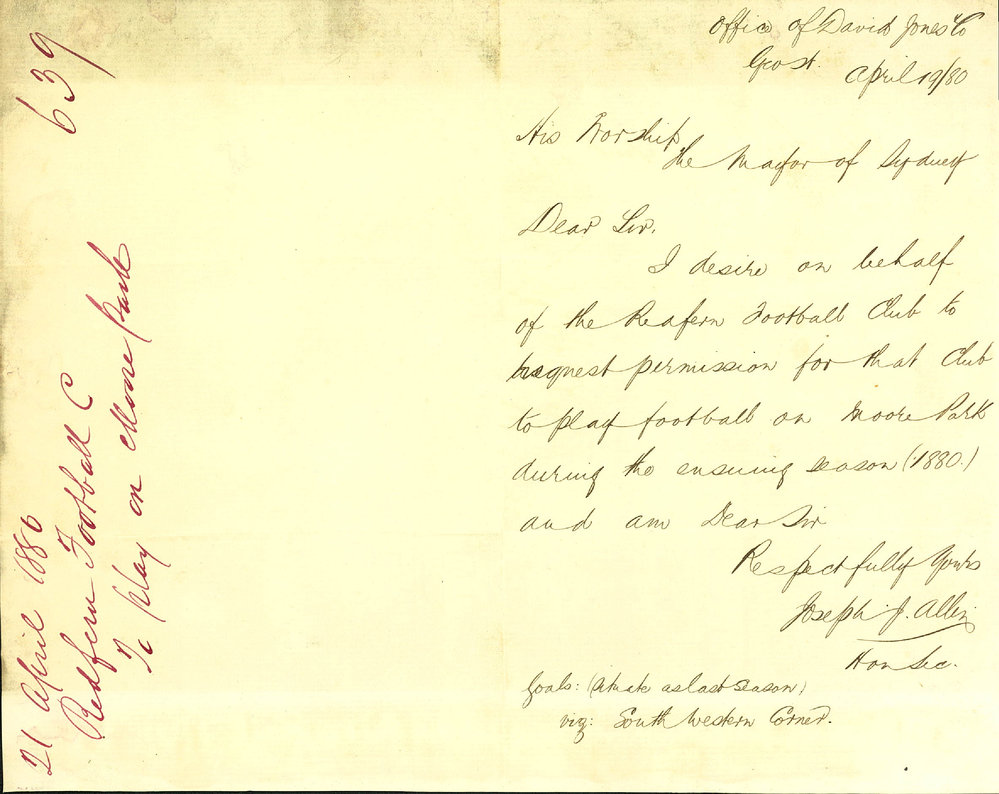 639
21 April 1880
Redfern Football C
To play on Moore Park
Office of David Jones & Co
Geo St. April 19/80
His Worship
The Mayor of Sydney
Dear Sir,
I desire on behalf
of the Redfern Football Club to
request permission for that Club
to play football on Moore Park
during the ensuing season (1880.)
and am Dear Sir
Respectfully Yours
Joseph J. Allen
Hon Sec.
Goals: (situate as last season)
viz: South Western Corner.